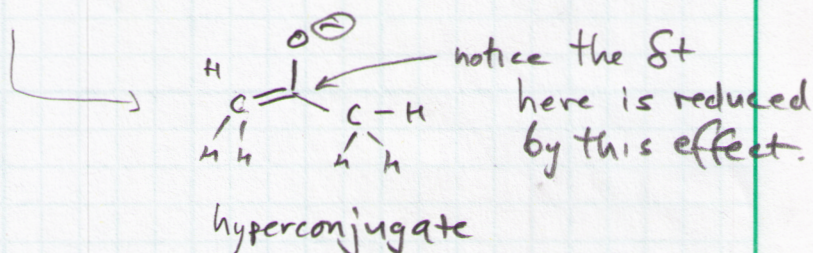 O⊖
H
C
C – H
H H
H H
notice the δ+
here is reduced
by this effect.
hyperconjugate